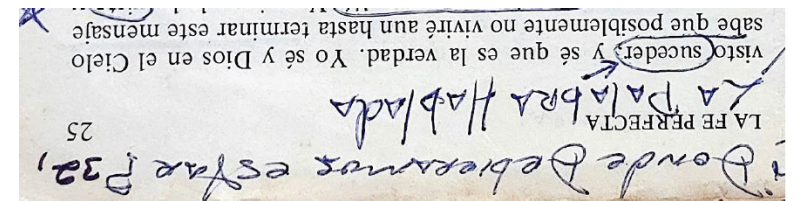 ¿Donde Debieramos estar? 32,
LA FE PERFECTA 25
LA PalabRA Hablada
visto suceder, y sé que es la verdad. Yo sé y Dios en el Cielo
sabe que posiblemente no viviré aun hasta terminar este mensaje